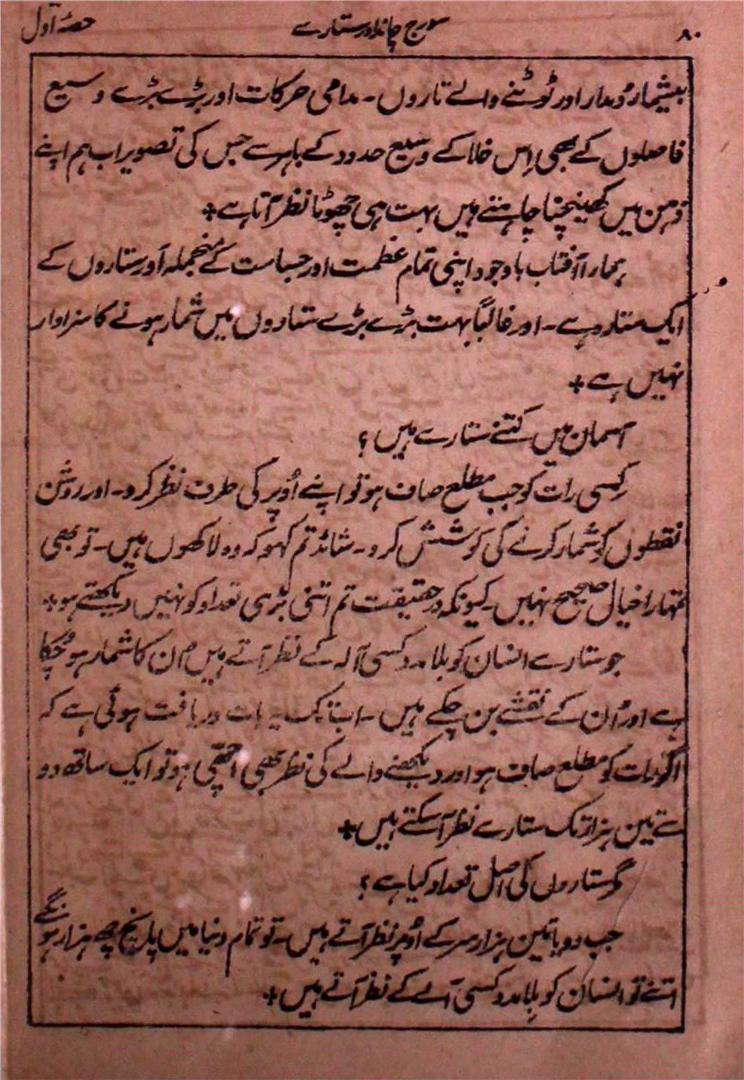 ۸۰ سورج چاند اور ستارے حصہٴ اوّل
بیشمار دُمدار اور ٹوٹنے والے تاروں۔ مدامی حرکات اور بڑے بڑے وسیع
فاصلوں کے بھی اِس خلا کے وسیع حدود کے باہر سے جس کی تصویر اب ہم اپنے
ذہن میں کھینچنا چاہتے ہیں بہت ہی چھوٹا نظر آتا ہے +
ہمارا آفتاب باوجود اپنی تمام عظمت اور جسامت کے منجملہ اَور ستاروں کے
ایک ستارہ ہے۔ اور غالباً بہت بڑے بڑے ستاروں میں شمار ہونے کا سزاوار
نہیں ہے +
آسمان میں کتنے ستارے ہیں؟
کِسی رات کو جب مطلع صاف ہو تو اپنے اُوپر کی طرف نظر کرو۔ اور روشن
نقطوں کو شمار کرنے کی کوشش کرو۔ شائد تم کہو کہ وہ لاکھوں ہیں۔ تو بھی
تمہارا خیال صحیح نہیں۔ کیونکہ درحقیقت تم اتنی بڑی تعداد کو نہیں دیکھتے ہو +
جو ستارے انسان کو بلا مدد کسی آلہ کے نظر آتے ہیں اُن کا شمار ہو چُکا
ہے اور اُن کے نقشے بن چکے ہیں۔ اب تک یہ بات دریافت ہوئی ہے کہ
اگر رات کو مطلع صاف ہو اور دیکھنے والے کی نظر بھی اچھی ہو تو ایک ساتھ دو
سے تین ہزار تک ستارے نظر آ سکتے ہیں +
گر ستاروں کی اصل تعداد کیا ہے؟
جب دو یا تین ہزار سر کے اُوپر نظر آتے ہیں۔ تو تمام دنیا میں پانچ چھ ہزار ہونگے
اتنے تو انسان کو بلا مدد کسی آلے کے نظر آتے ہیں +